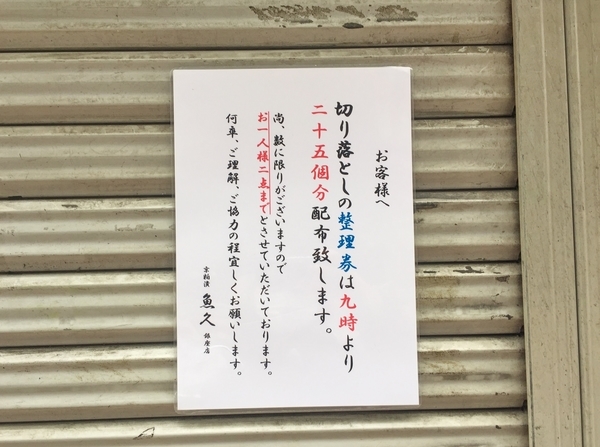 お客様へ
切り落としの整理券は九時より
二十五個分配布致します。
尚、数に限りがございますので
お一人様二点までとさせていただいております。
何卒、ご理解、ご協力の程宜しくお願いします。
京粕漬 魚久 銀座店